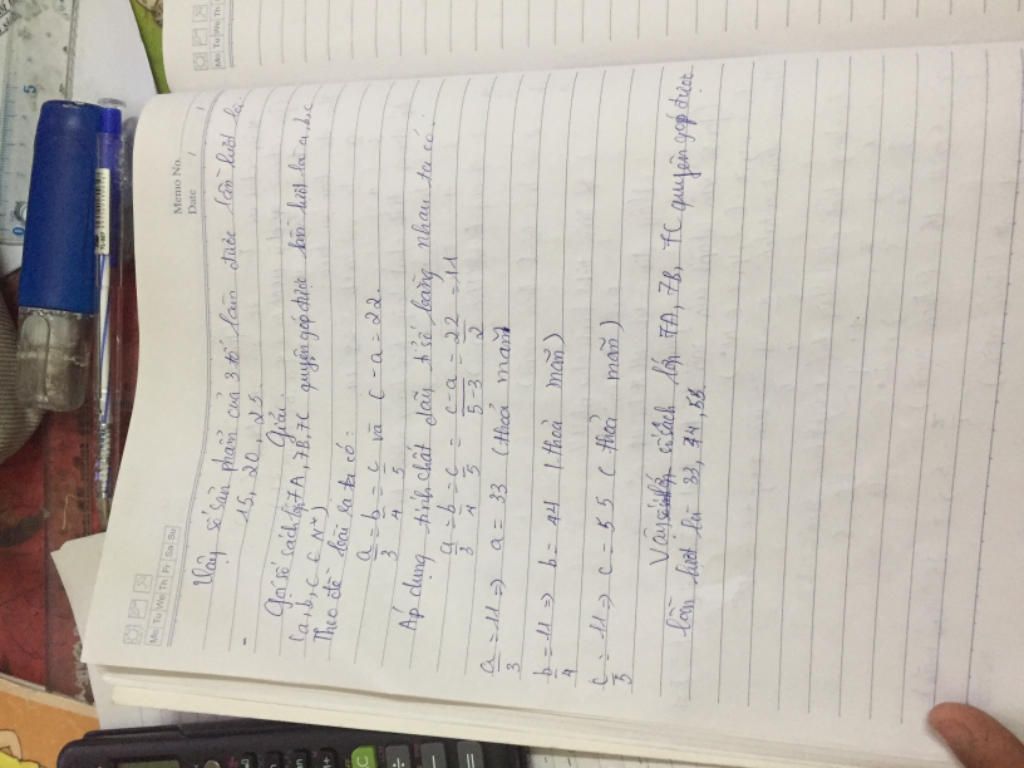 Mo Tu We Th Fr Sa Su
Memo No.
Date / /
Vậy số sản phẩm của 3 tổ lần được lần lượt là:
15, 20, 25
- Giải
Gọi số sách lớp 7A, 7B, 7C quyên góp được lần lượt là a, b, c
(a, b, c ∈ N*)
Theo đề bài ta có:
a/3 = b/4 = c/5 và c - a = 22.
Áp dụng tính chất dãy tỉ số bằng nhau ta có:
a/3 = b/4 = c/5 = c-a/5-3 = 22/2 = 11
a/3 = 11 => a = 33 (thoả mãn)
b/4 = 11 => b = 44 (thoả mãn)
c/5 = 11 => c = 55 (thoả mãn)
Vậy số sách lớp 7A, 7B, 7C quyên góp được
lần lượt là 33, 44, 55